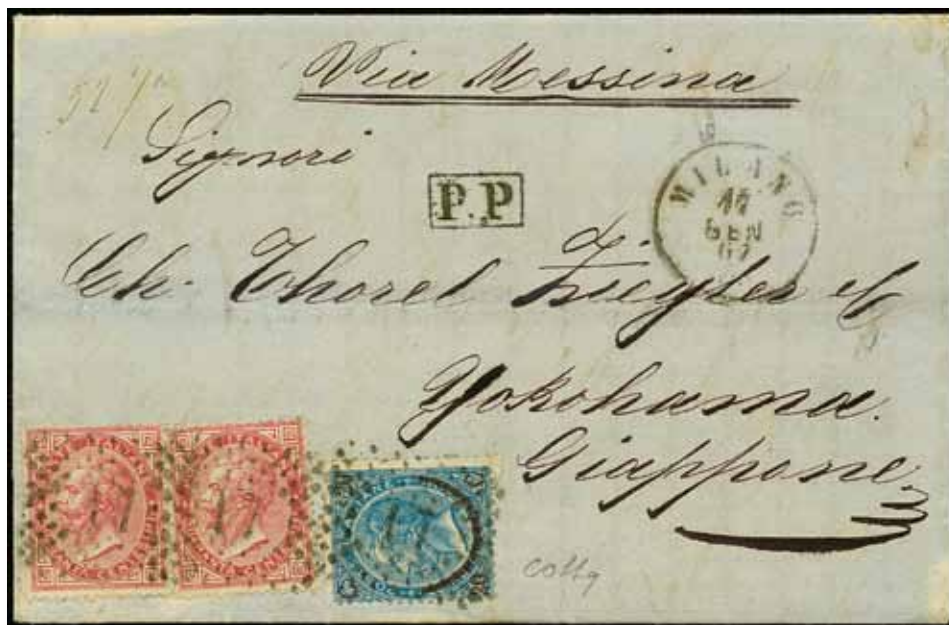 Via Messina
Signori
P.P
MILANO
17
GEN
67
Ch. Thorel Ziegler & C
Yokohama.
Giappone
17
17
C 20
20